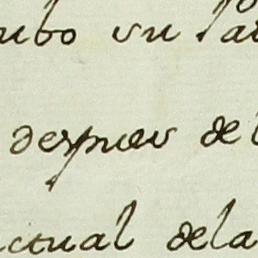 ubo su
despues del
ctual dela